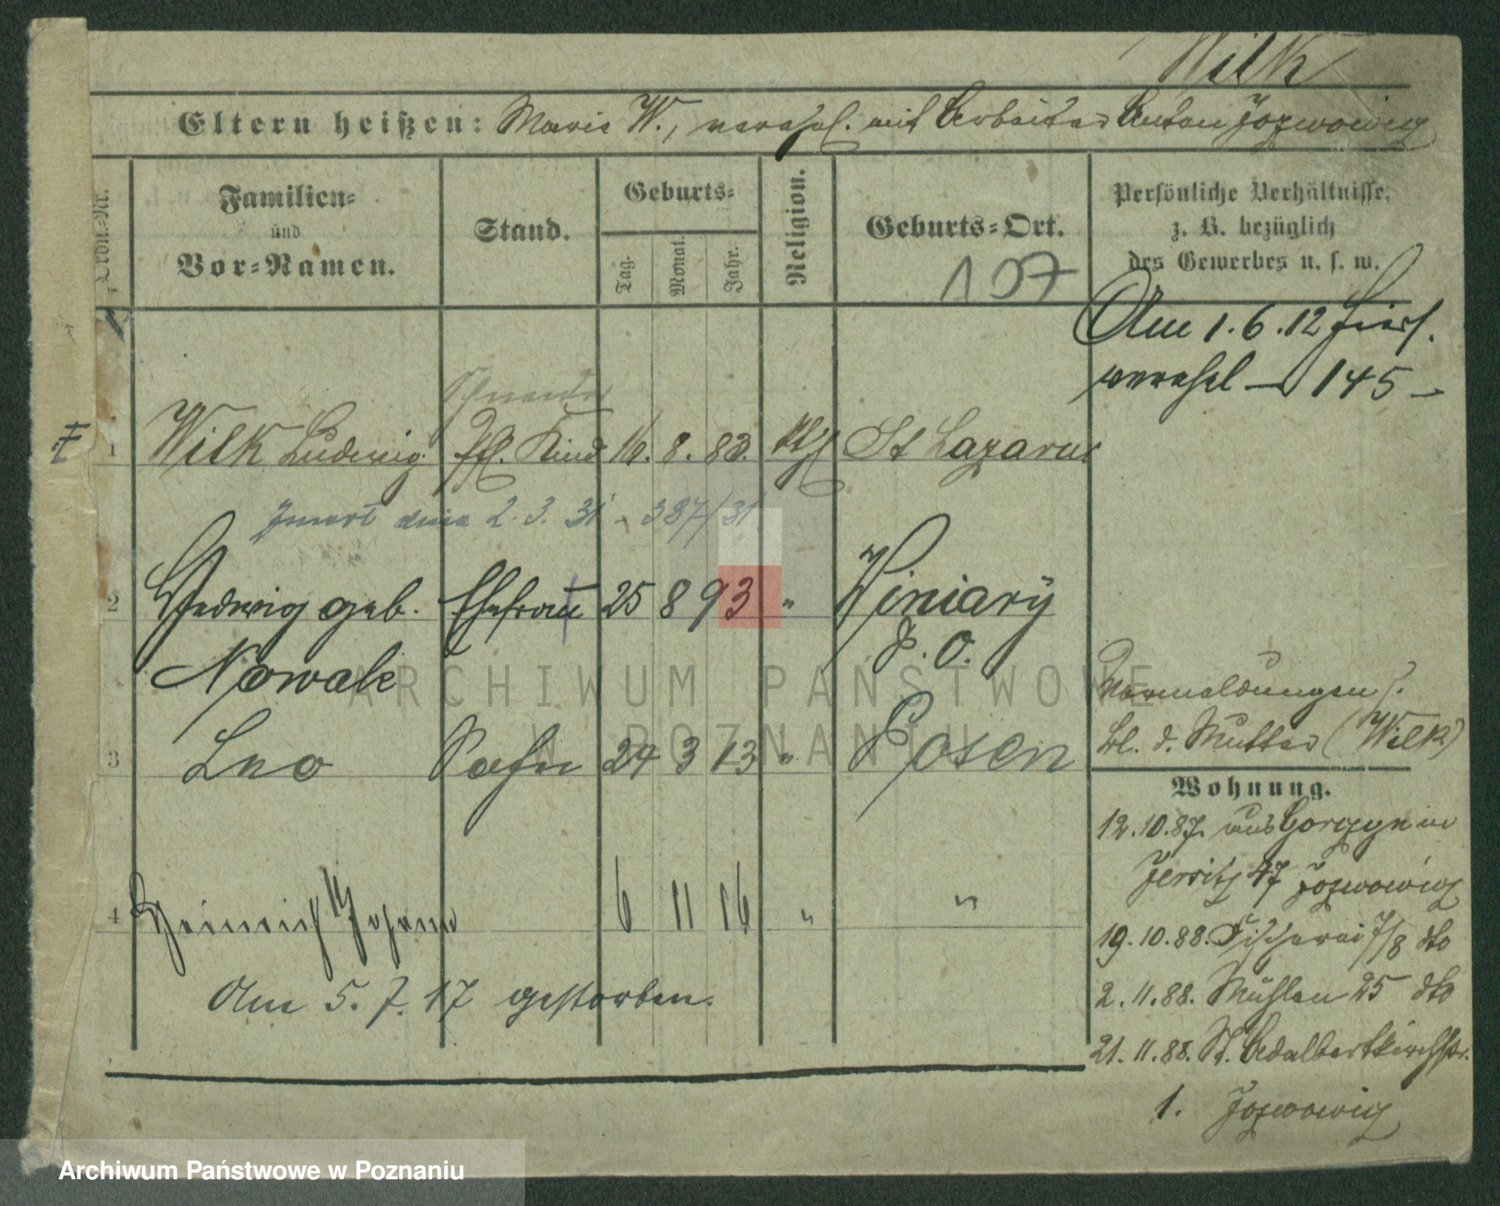 Wilk
Eltern heißen: Marie W., verehel. mit Arbeiter Anton Jozwowicz
Ordn.-Nr.
Familien- und Vor-Namen.
Stand.
Geburts-
Tag. Monat. Jahr.
Religion.
Geburts-Ort.
107
Persönliche Verhältnisse,
z. B. bezüglich
des Gewerbes u. s. w.
Am 1.6.12 hier
verehel – 145 –
1 Wilk Ludwig Pfl. Kind 16. 8. 83. kth St Lazarus
Zmarł dnia 2. 3. 31 - 387/31
2 Hedwig geb. Ehefrau 25 8 93 " Winiary
Nowak P. O.
3 Leo Sohn 24 3 13 " Posen
4 Heinrich Johann 6 11 16 " "
Am 5. 7. 17 gestorben.
Vormeldungen s.
bl. d. Mutter (Wilk)
Wohnung.
12.10.87. aus Gorczyn in
Jersitz 47 Jozwowicz
19.10.88. Fischerei 7/8 dto
2.11.88. Mühlen 25 dto
21.11.88. St. Adalbertkirchstr.
1. Jozwowicz
ARCHIWUM PAŃSTWOWE
W POZNANIU
Archiwum Państwowe w Poznaniu